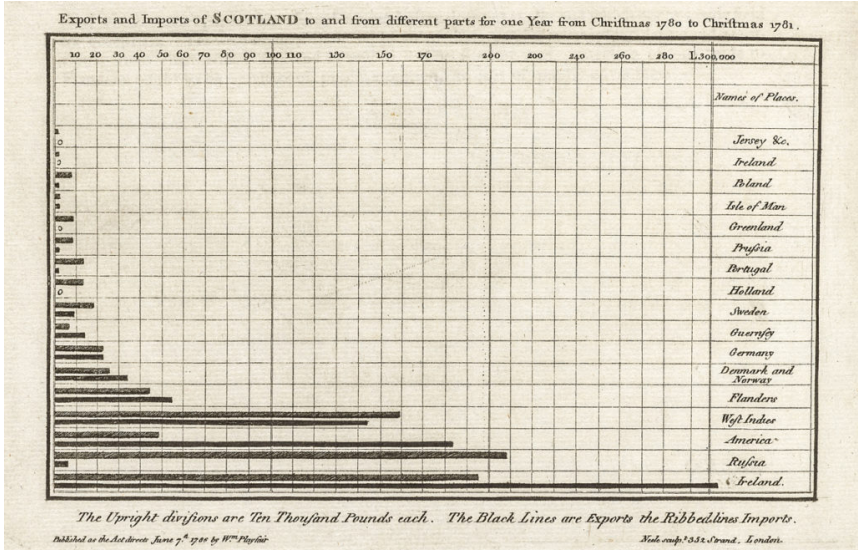 Exports and Imports of SCOTLAND to and from different parts for one Year from Chriſtmas 1780 to Chriſtmas 1781.
10 20 30 40 50 60 70 80 90 100 110 150 170 200 200 220 240 260 280 L300,000
Names of Places.
Jersey &c.
Ireland
Poland
Isle of Man
Greenland
Pruſsia
Portugal
Holland
Sweden
Guernſey
Germany
Denmark and
Norway
Flanders
Weſt Indies
America
Ruſsia
Ireland.
The Upright diviſions are Ten Thouſand Pounds each. The Black Lines are Exports the Ribbed lines Imports.
Publiſhed as the Act directs June 7th. 1786 by Wm. Playfair
Neele sculpt. 352 Strand, London.